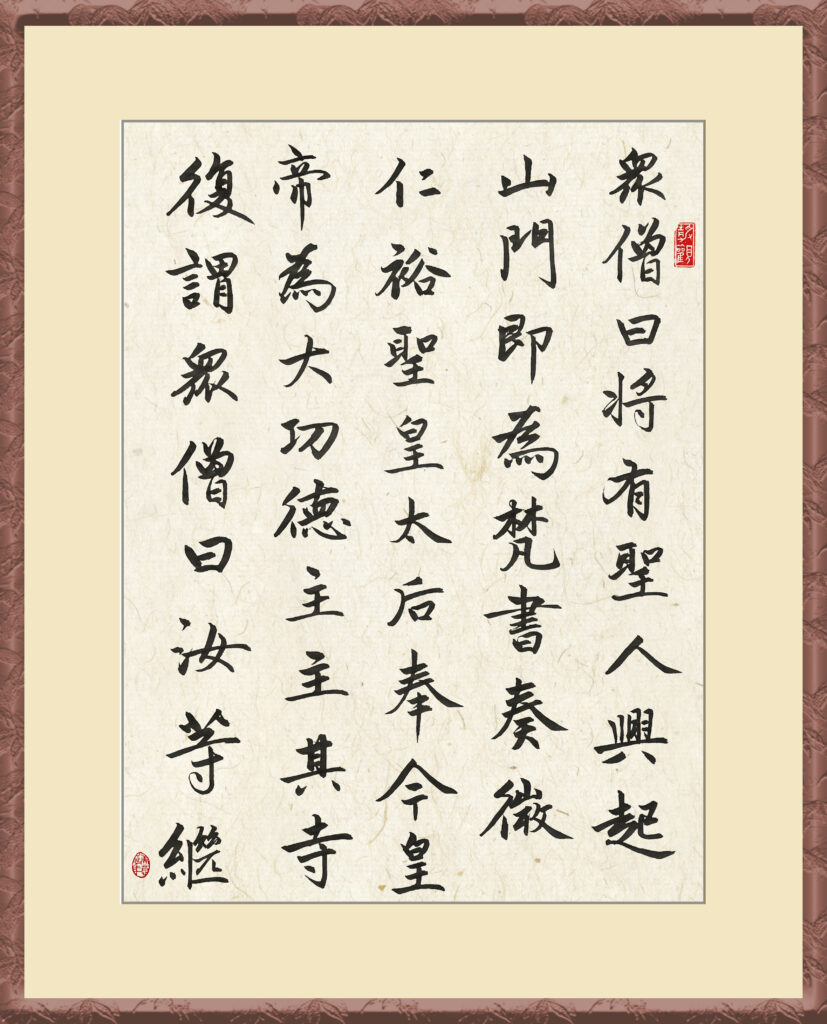 眾僧曰将有聖人興起
山門即為梵書奏徽
仁裕聖皇太后奉今皇
帝為大功德主主其寺
復謂眾僧曰汝等繼